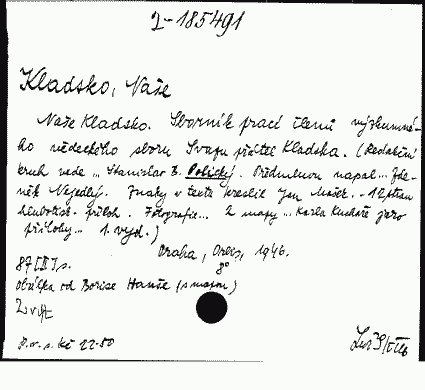 2-185491
Kladsko, Naše
Naše Kladsko. Sborník prací členů výzkumné-
ho vědeckého sboru Svazu přátel Kladska. (Redakční
kruh vede ... Stanislav B. Polický. Předmluvu napsal ... Zde-
něk Nejedlý. Znaky v textu kreslil Jan
hlubotisk. příloh. Fotografie... 2 mapy ... Karla Kuchaře jako
přílohy... 1. vyd.)
Praha, Orbis, 1946.
87 [II] s. 8°
Obálka od Borise Hanše (s mapou)
2 vář
P. o. s. Kč 22·50